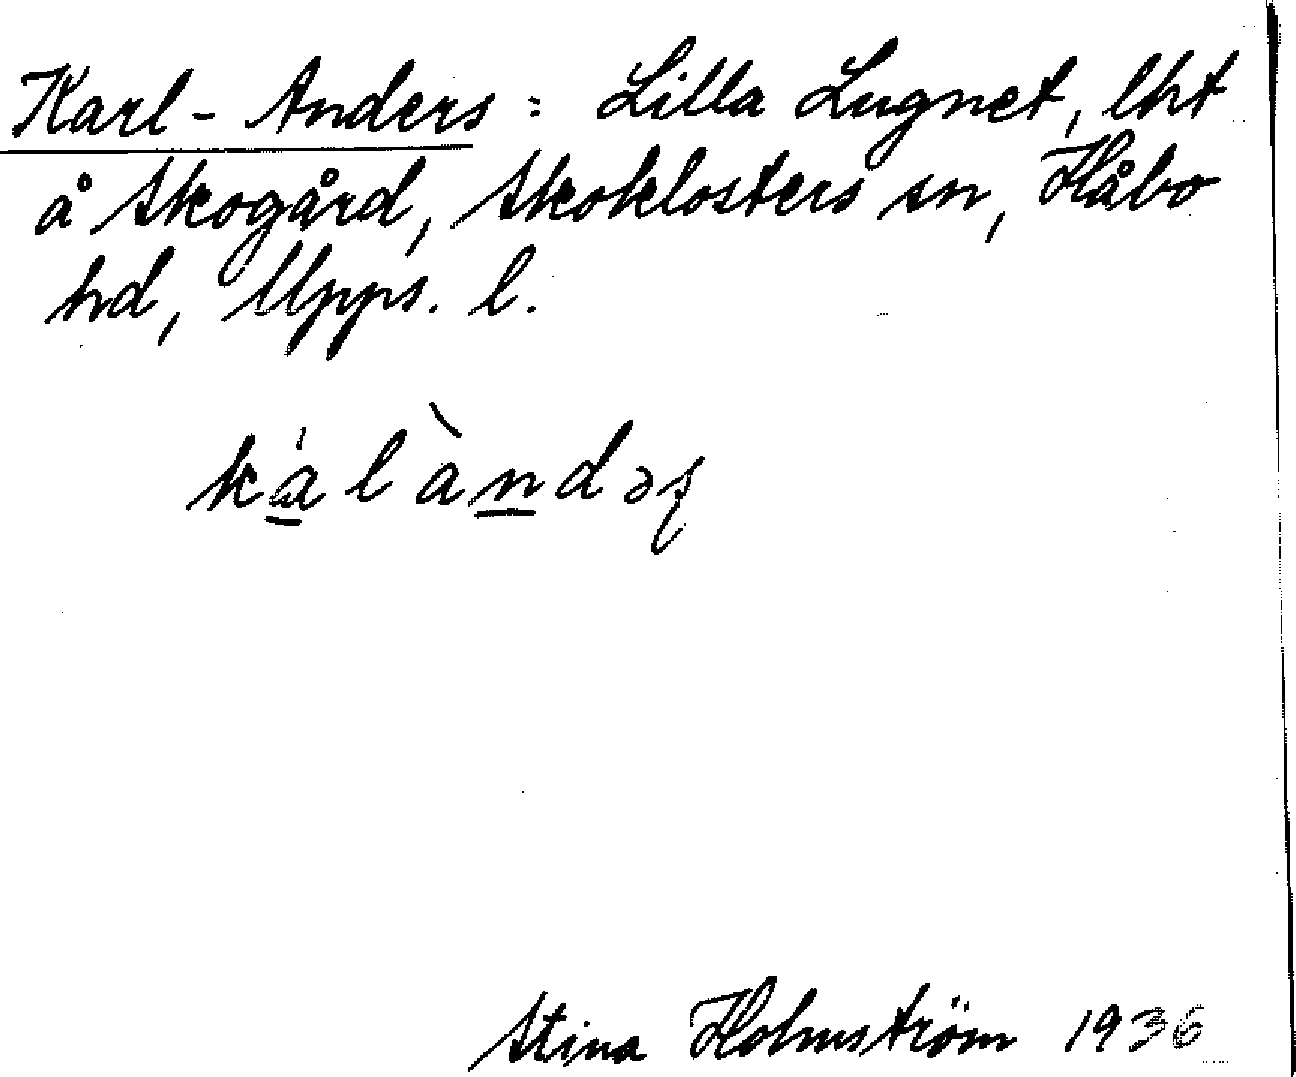 Karl-Anders : Lilla Lugnet, lht
å Skogård, Skoklosters sn, Håbo
hd, Upps. l.
ká̱làṉdəʂ
Stina Holmström 1936